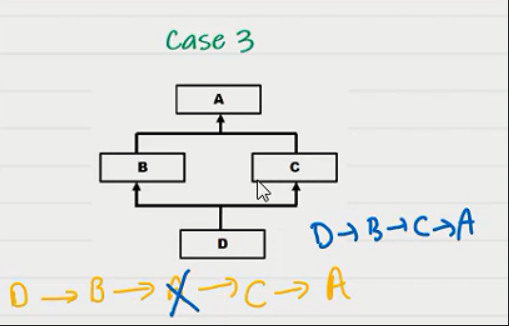 Case 3
A
B
C
D
D → B → C → A
D → B → A → C → A